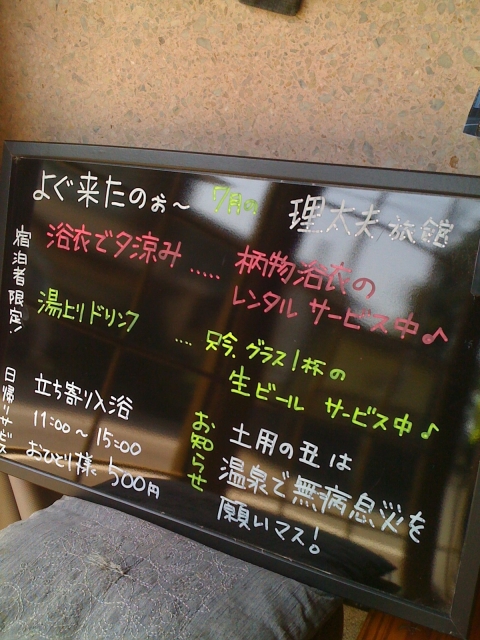 よぐ来たのぉ〜 7月の 理太夫旅館
宿泊者限定!
浴衣で夕涼み ..... 柄物浴衣の
レンタル サービス中♪
湯上りドリンク .... 只今、グラス1杯の
生ビール サービス中♪
日帰りサービス
立ち寄り入浴
11:00〜15:00
おひとり様 500円
お知らせ
土用の丑は
温泉で無病息災を
願いマス!